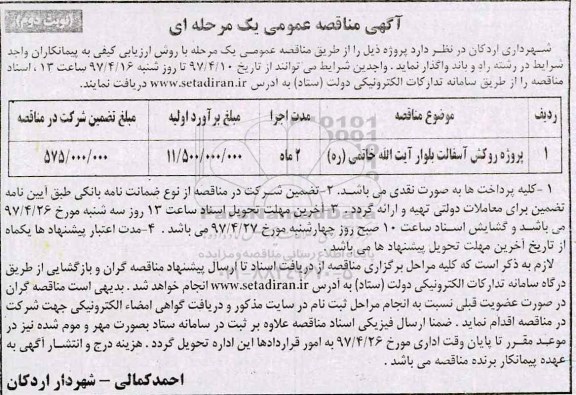 (نوبت دوم)
آگهی مناقصه عمومی یک مرحله ای
شهرداری اردکان در نظر دارد پروژه ذیل را از طریق مناقصه عمومی یک مرحله با روش ارزیابی کیفی به پیمانکاران واجد
شرایط در رشته راه و باند واگذار نماید . واجدین شرایط می توانند از تاریخ ۹۷/۴/۱۰ تا روز شنبه ۹۷/۴/۱۶ ساعت ۱۳ ، اسناد
مناقصه را از طریق سامانه تدارکات الکترونیکی دولت (ستاد) به ادرس www.setadiran.ir دریافت نمایند.
ردیف موضوع مناقصه مدت اجرا مبلغ برآورد اولیه مبلغ تضمین شرکت در مناقصه
۱ پروژه روکش آسفالت بلوار آیت الله خاتمی (ره) ۲ ماه ۱۱/۵۰۰/۰۰۰/۰۰۰ ۵۷۵/۰۰۰/۰۰۰
۱-کلیه پرداخت ها به صورت نقدی می باشد. ۲-تضمین شرکت در مناقصه از نوع ضمانت نامه بانکی طبق آیین نامه
تضمین برای معاملات دولتی تهیه و ارائه گردد . ۳-آخرین مهلت تحویل اسناد ساعت ۱۳ روز سه شنبه مورخ ۹۷/۴/۲۶
می باشد و گشایش اسناد ساعت ۱۰ صبح روز چهارشنبه مورخ ۹۷/۴/۲۷ می باشد . ۴-مدت اعتبار پیشنهاد ها یکماه
از تاریخ آخرین مهلت تحویل پیشنهاد ها می باشد.
لازم به ذکر است که کلیه مراحل برگزاری مناقصه از دریافت اسناد تا ارسال پیشنهاد مناقصه گران و بازگشایی از طریق
درگاه سامانه تدارکات الکترونیکی دولت (ستاد) به ادرس www.setadiran.ir انجام خواهد شد . بدیهی است مناقصه گران
در صورت عضویت قبلی نسبت به انجام مراحل ثبت نام در سایت مذکور و دریافت گواهی امضاء الکترونیکی جهت شرکت
در مناقصه اقدام نماید . ضمنا ارسال فیزیکی اسناد مناقصه علاوه بر ثبت در سامانه ستاد بصورت مهر و موم شده نیز در
موعد مقرر تا پایان وقت اداری مورخ ۹۷/۴/۲۶ به امور قراردادها این اداره تحویل گردد . هزینه درج و انتشار آگهی به
عهده پیمانکار برنده مناقصه می باشد .
احمدکمالی – شهردار اردکان